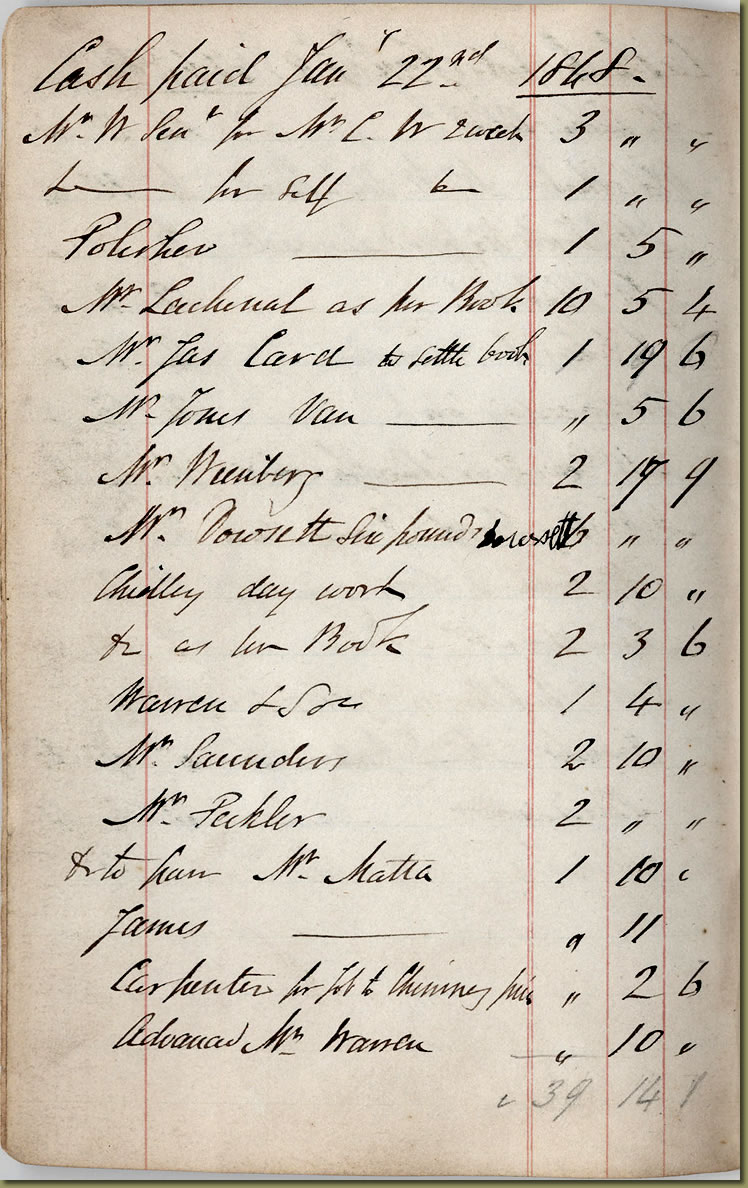 Cash paid Jany 22nd 1868.
Mr. W Senr for Mr C. W 2 week 3 " "
Do for self Do 1 " "
Polisher 1 5 "
Mr. Lachenal as per Book 10 5 4
Mr. Jas Card to settle book 1 19 6
Mr. Jones Van " 5 6
Mr. 2 17 9
Mr. Dowsett Six pounds Dowsett 6 " "
Chidley day work 2 10 "
Do as per Book 2 3 6
Warren & Son 1 4 "
Mr. Saunders 2 10 "
Mr. 2 " "
& to Mr. Matta 1 10 "
James " 11
Carpenter for Job to Chimney " 2 6
Advanced Mr. Warren " 10 "
39 14 1